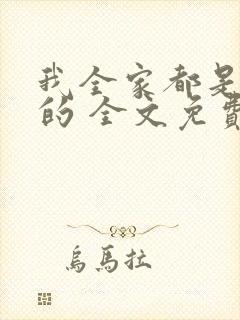 我全家都是
的全文免費
烏馬拉